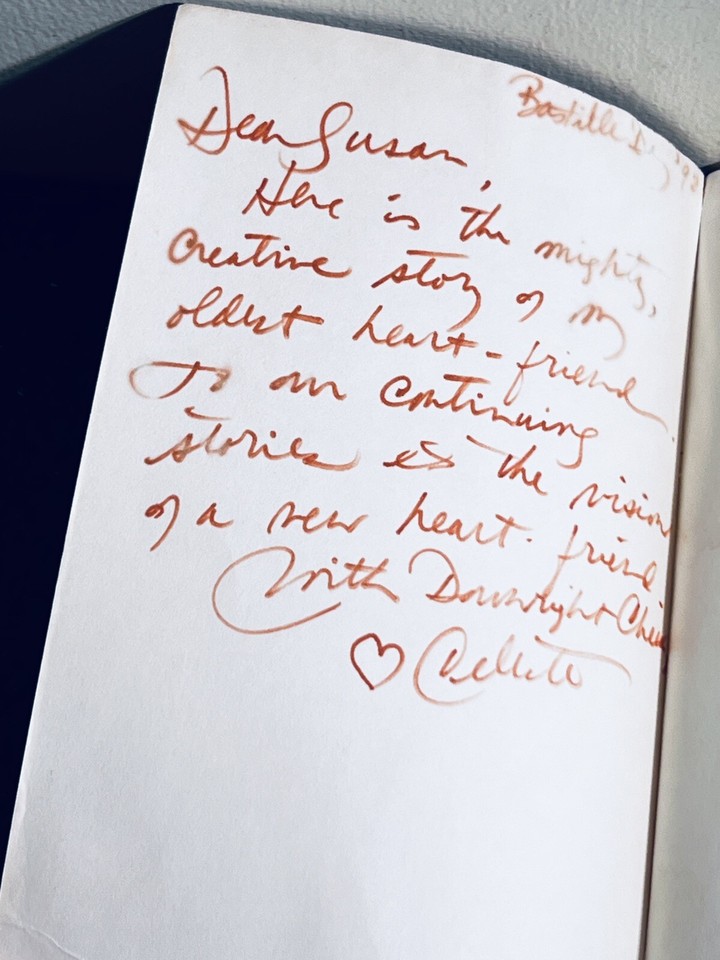 Bastille Day '93
Dear Susan,
Here is the mighty,
creative story of my
oldest heart-friend.
To our continuing
stories & the vision
of a new heart-friend
With Downright
♡ Celeste